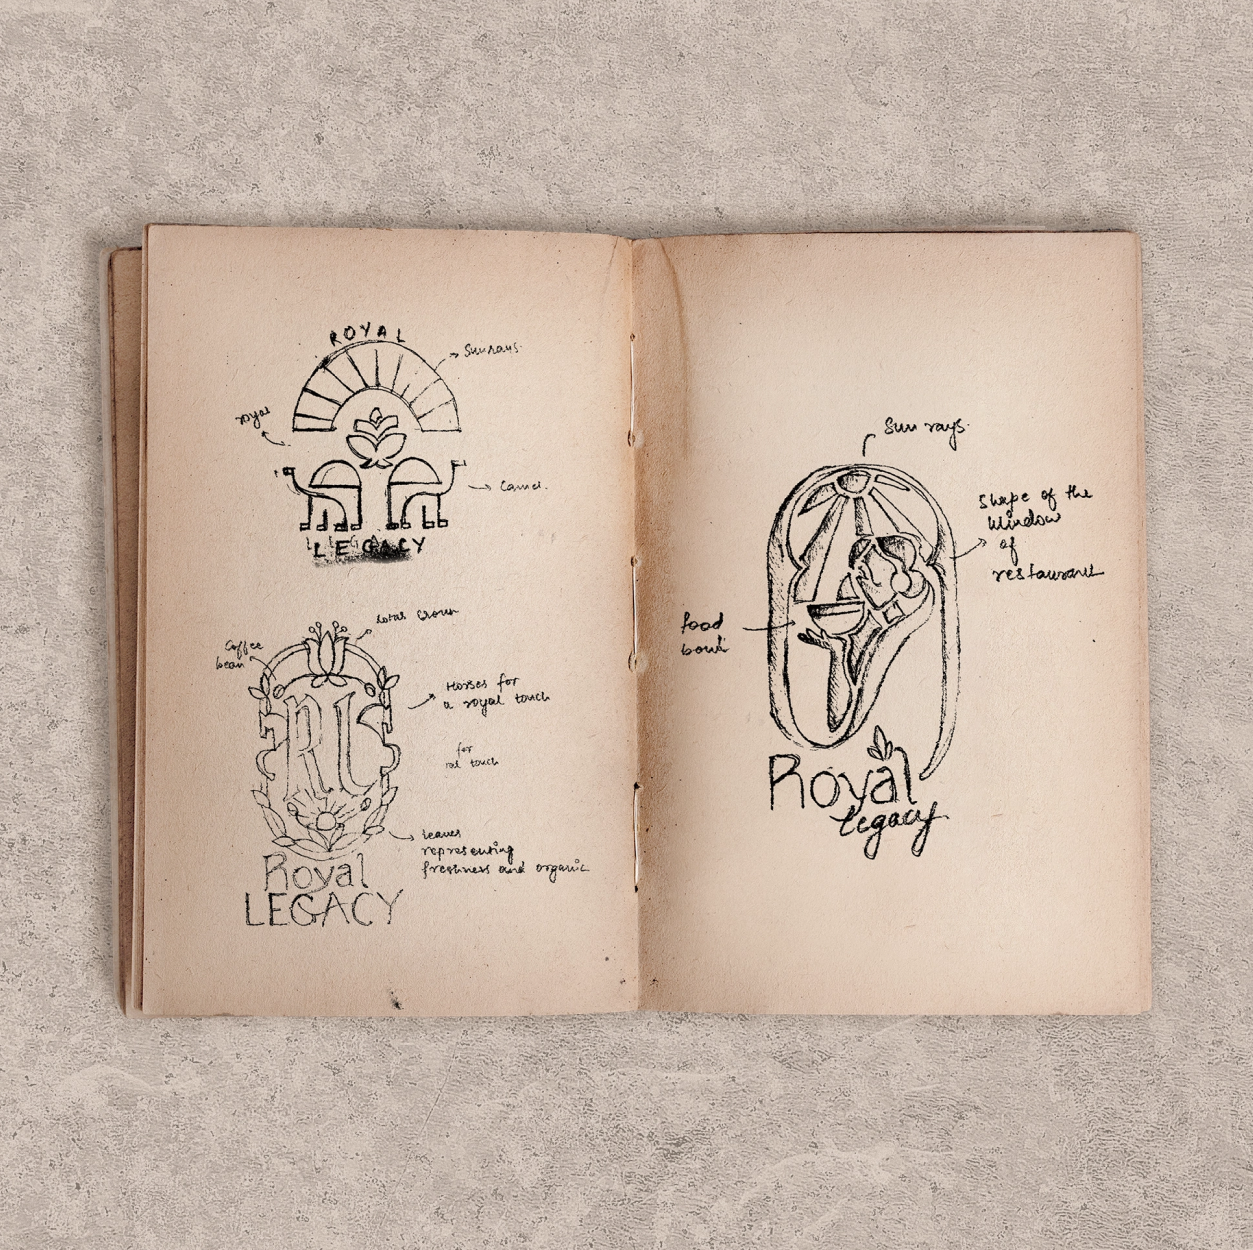 ROYAL
Sun rays
royal
Camel.
LEGACY
lotus crown
Coffee
bean
Horses for
a royal touch
RL
for
touch
leaves
representing
freshness and organic
Royal
LEGACY
Sun rays
Shape of the
Window
of
restaurant
food
bowl
Royal
legacy